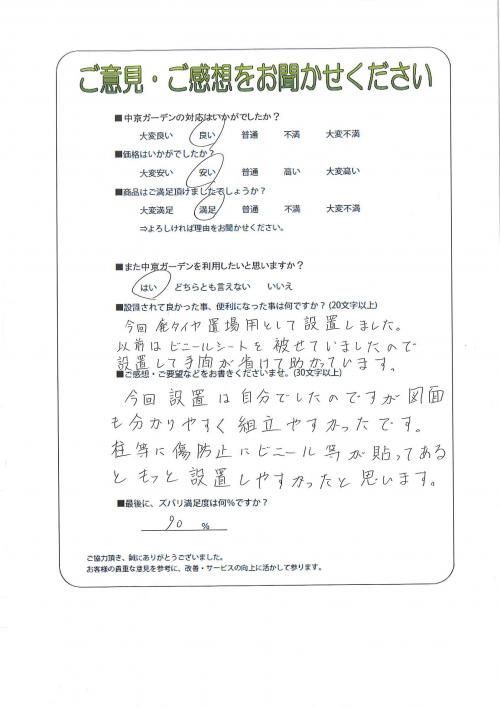 ご意見・ご感想をお聞かせください
■中京ガーデンの対応はいかがでしたか？
大変良い 良い 普通 不満 大変不満
■価格はいかがでしたか？
大変安い 安い 普通 高い 大変高い
■商品はご満足頂けましたでしょうか？
大変満足 満足 普通 不満 大変不満
⇒よろしければ理由をお聞かせください。
■また中京ガーデンを利用したいと思いますか？
はい どちらとも言えない いいえ
■設置されて良かった事、便利になった事は何ですか？(20文字以上)
今回廃タイヤ置場用として設置しました。
以前はビニールシートを被せていましたので
設置して手間が省けて助かっています。
■ご感想・ご要望などをお書きくださいませ。(30文字以上)
今回設置は自分でしたのですが図面
も分かりやすく組立やすかったです。
柱等に傷防止にビニール等が貼ってある
ともっと設置しやすかったと思います。
■最後に、ズバリ満足度は何％ですか？
90 ％
ご協力頂き、誠にありがとうございました。
お客様の貴重な意見を参考に、改善・サービスの向上に活かして参ります。